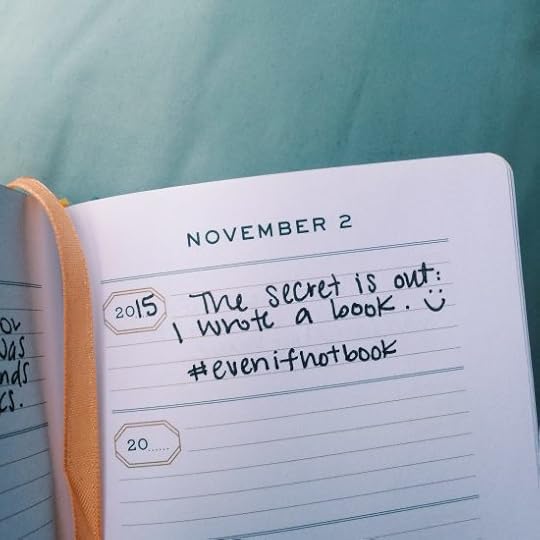 NOVEMBER 2
2015 The secret is out:
I wrote a book. :)
#evenifnotbook
20......
was
nds
cs.